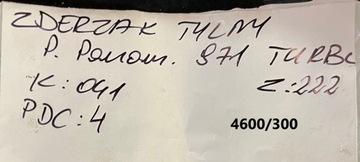 ZDERZAK TYLNY
P. Panam. 971 TURBO
K: 041 Z: 222
PDC: 4
4600/300